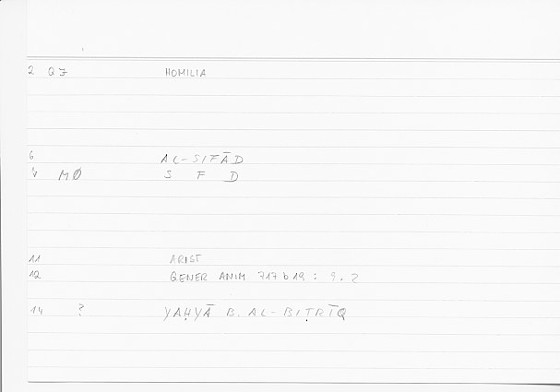 2 QJ HOMILIA
6 AL-SIFĀD
4 MØ S F D
11 ARIST
12 GENER ANIM 717 b 19 : 9.2
14 ? YAḤYĀ B. AL-BIṬRĪQ